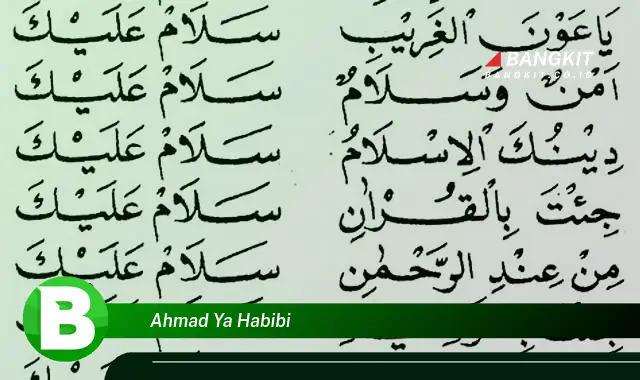 يَا عَوْنَ الْغَرِيْبِ سَلَامْ عَلَيْكَ
BANGKIT
BANGKIT.CO.ID
اَمْنٌ وَسَلَامٌ سَلَامْ عَلَيْكَ
دِيْنُكَ الْاِسْلَامُ سَلَامْ عَلَيْكَ
جِئْتَ بِالْقُرْاٰنِ سَلَامْ عَلَيْكَ
مِنْ عِنْدِ الرَّحْمٰنِ سَلَامْ عَلَيْكَ
B
Ahmad Ya Habibi